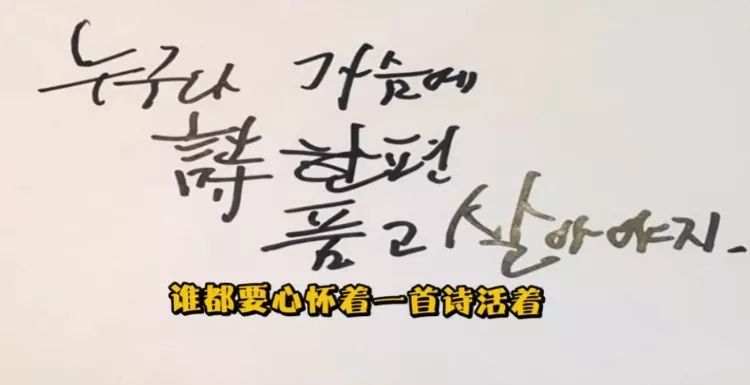 누구나 가슴에
詩 한편
품고 살아야지.
谁都要心怀着一首诗活着